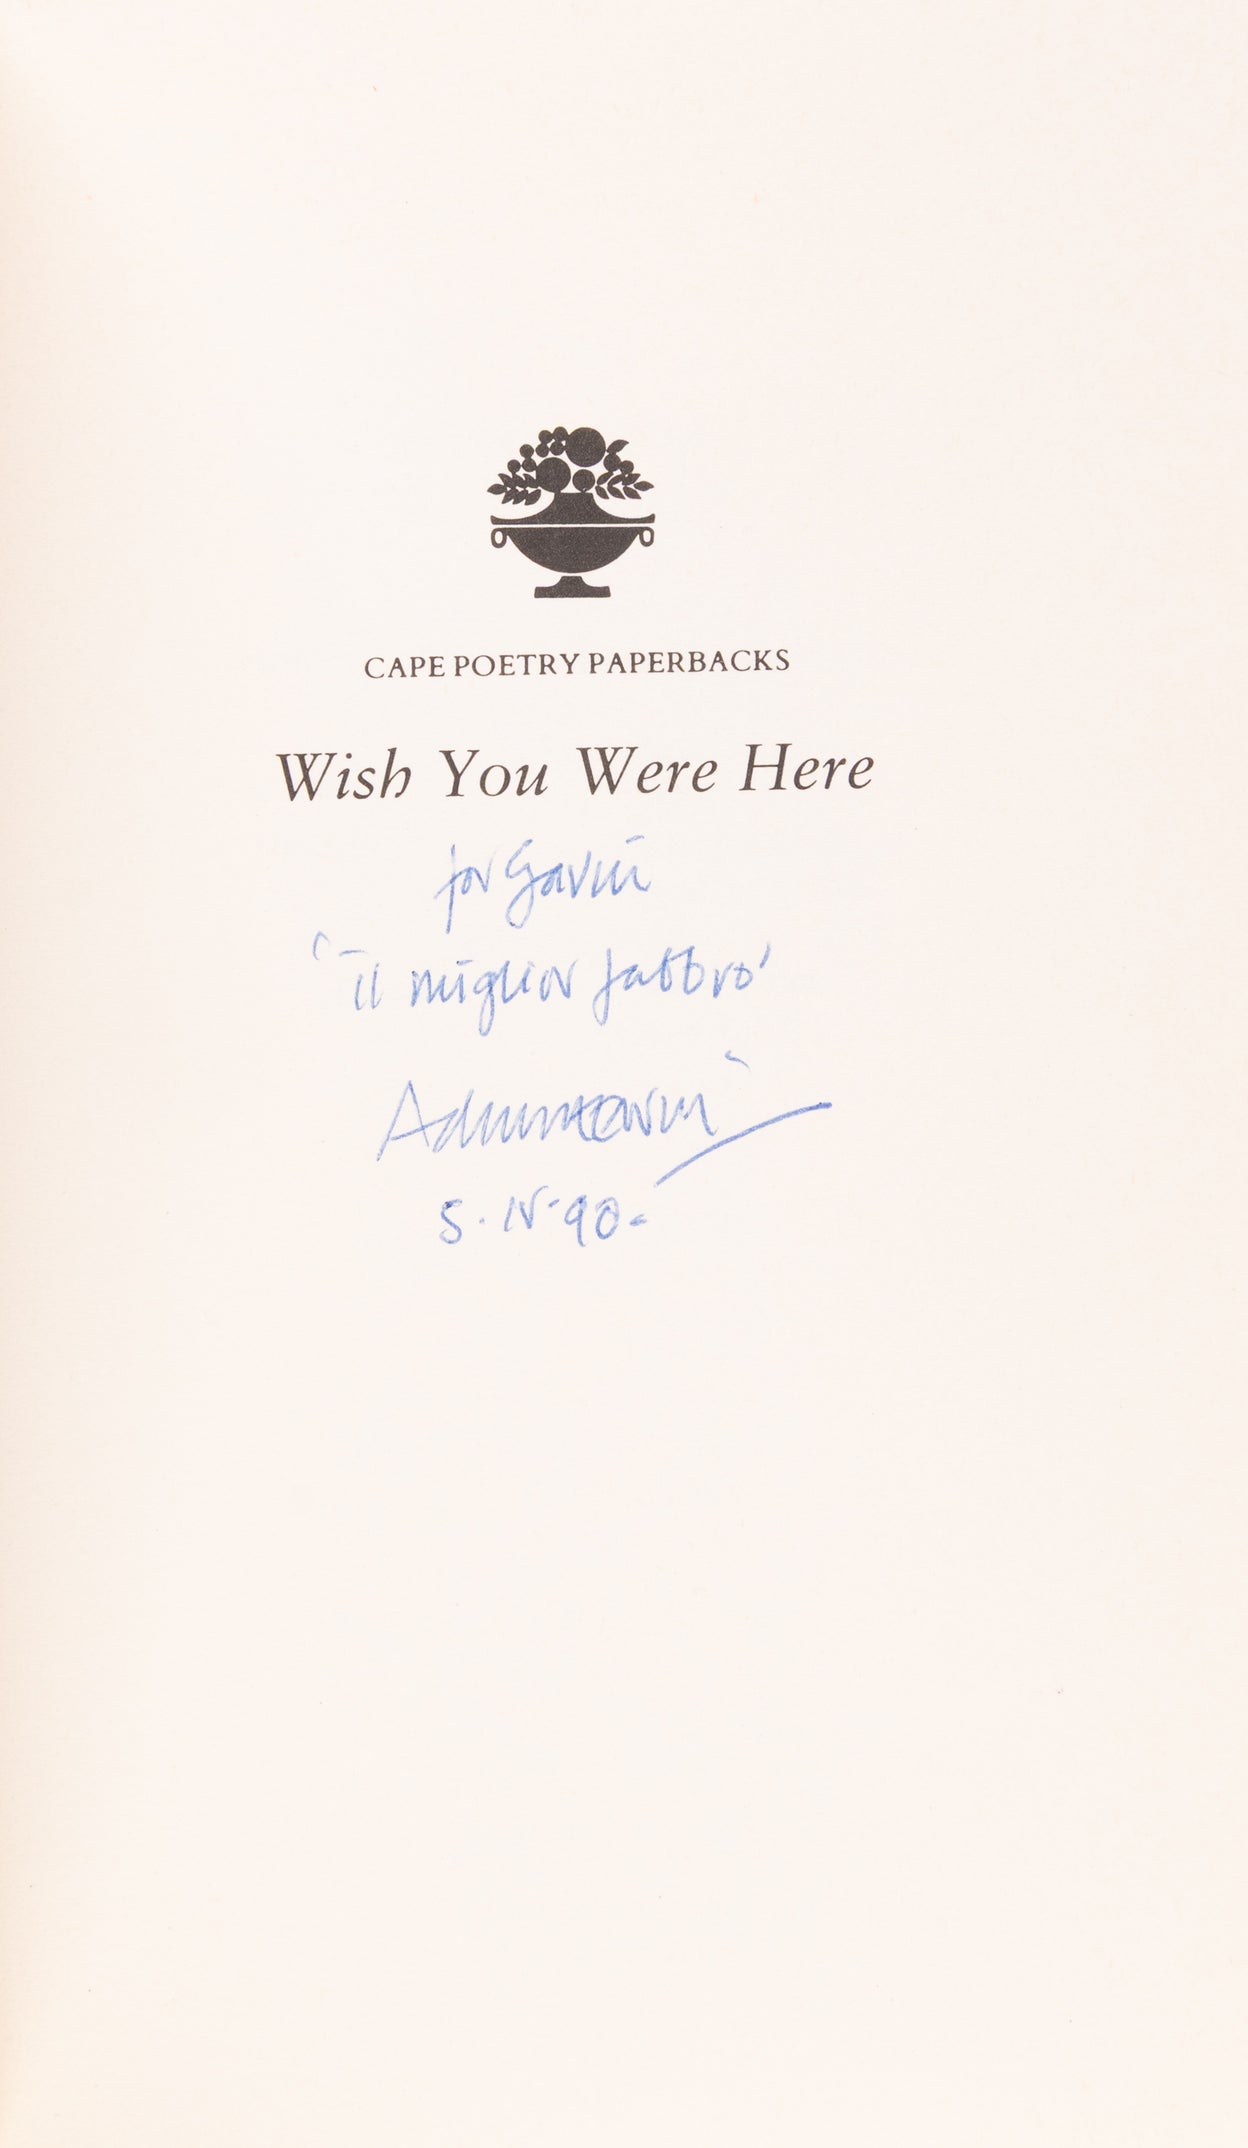 CAPE POETRY PAPERBACKS
Wish You Were Here
for Gavin
'il miglior fabbro'
Adrian Henri
5·IV·90-